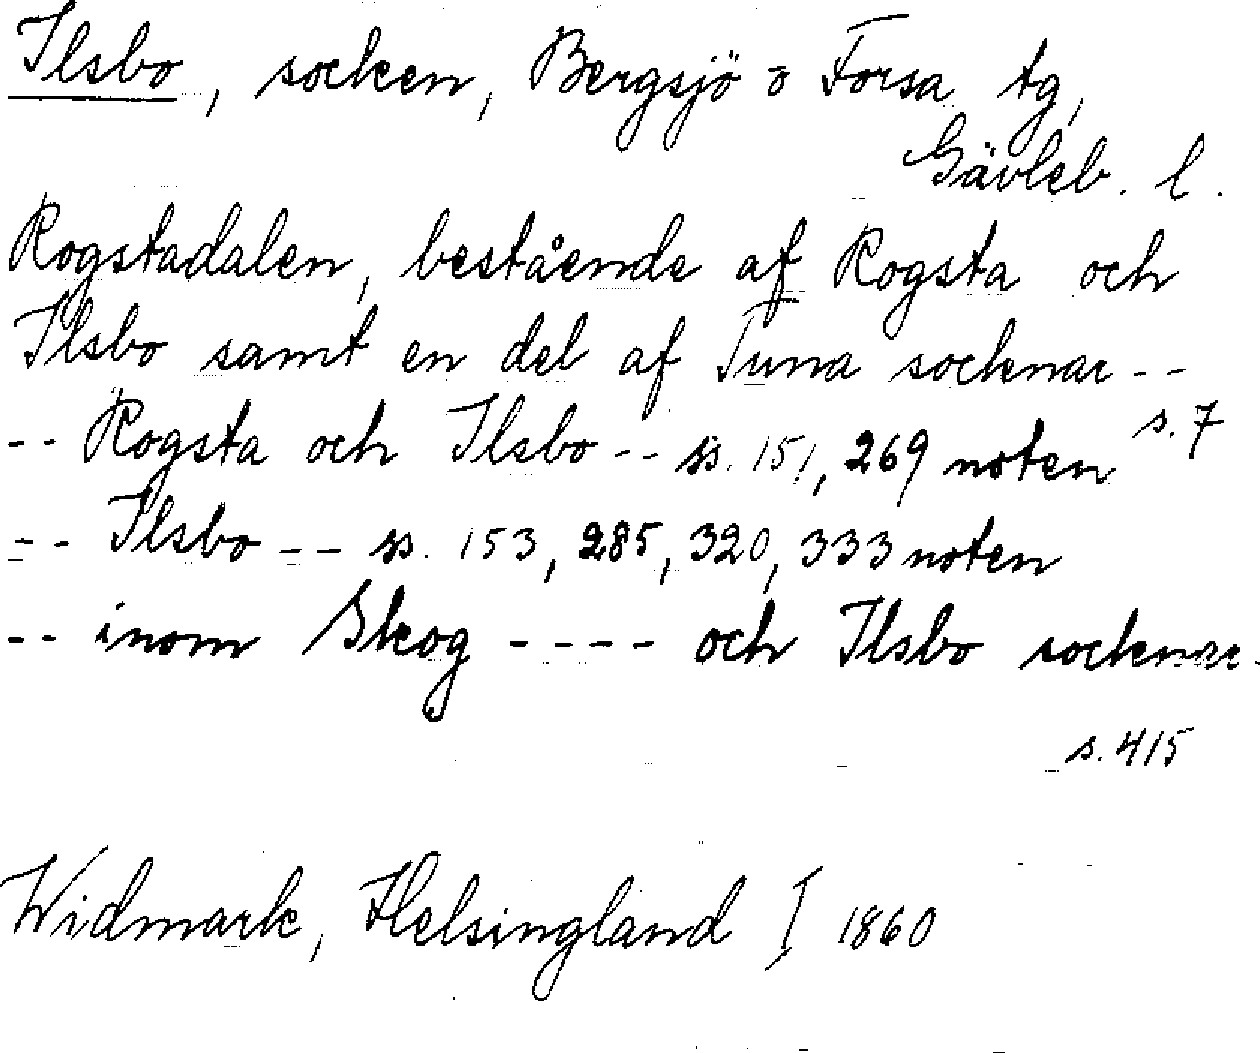 Ilsbo, socken, Bergsjö o Forsa tg,
Gävleb. l.
Rogstadalen, bestående af Rogsta och
Ilsbo samt en del af Tuna socknar --
s. 7
-- Rogsta och Ilsbo -- ss. 151, 269 noten
-- Ilsbo -- ss. 153, 285, 320, 333 noten
-- inom Skog ---- och Ilsbo socknar -
s. 415
Widmark, Helsingland I 1860